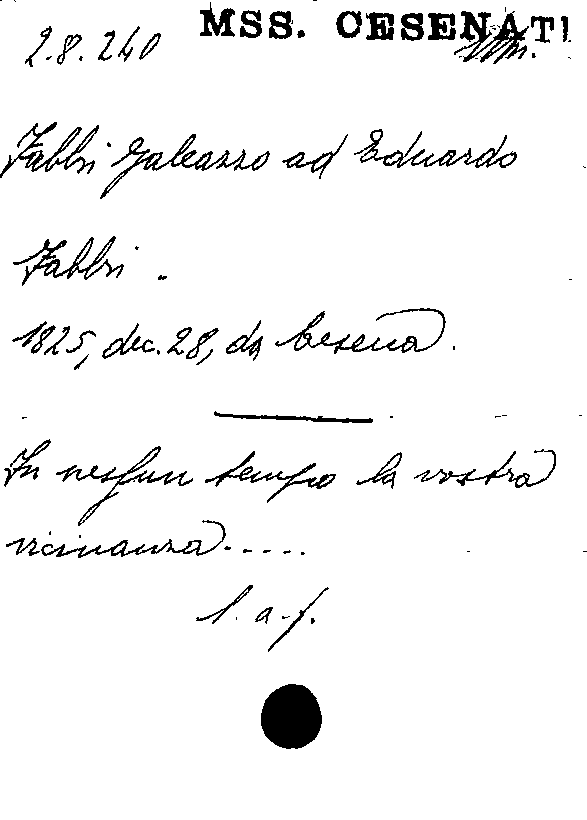 MSS. CESENATI
2.8.240
Fabbri Galeazzo ad Eduardo
Fabbri.
1825, dec. 28, da Cesena.
In nessun tempo la vostra
vicinanza.....
l. a. f.